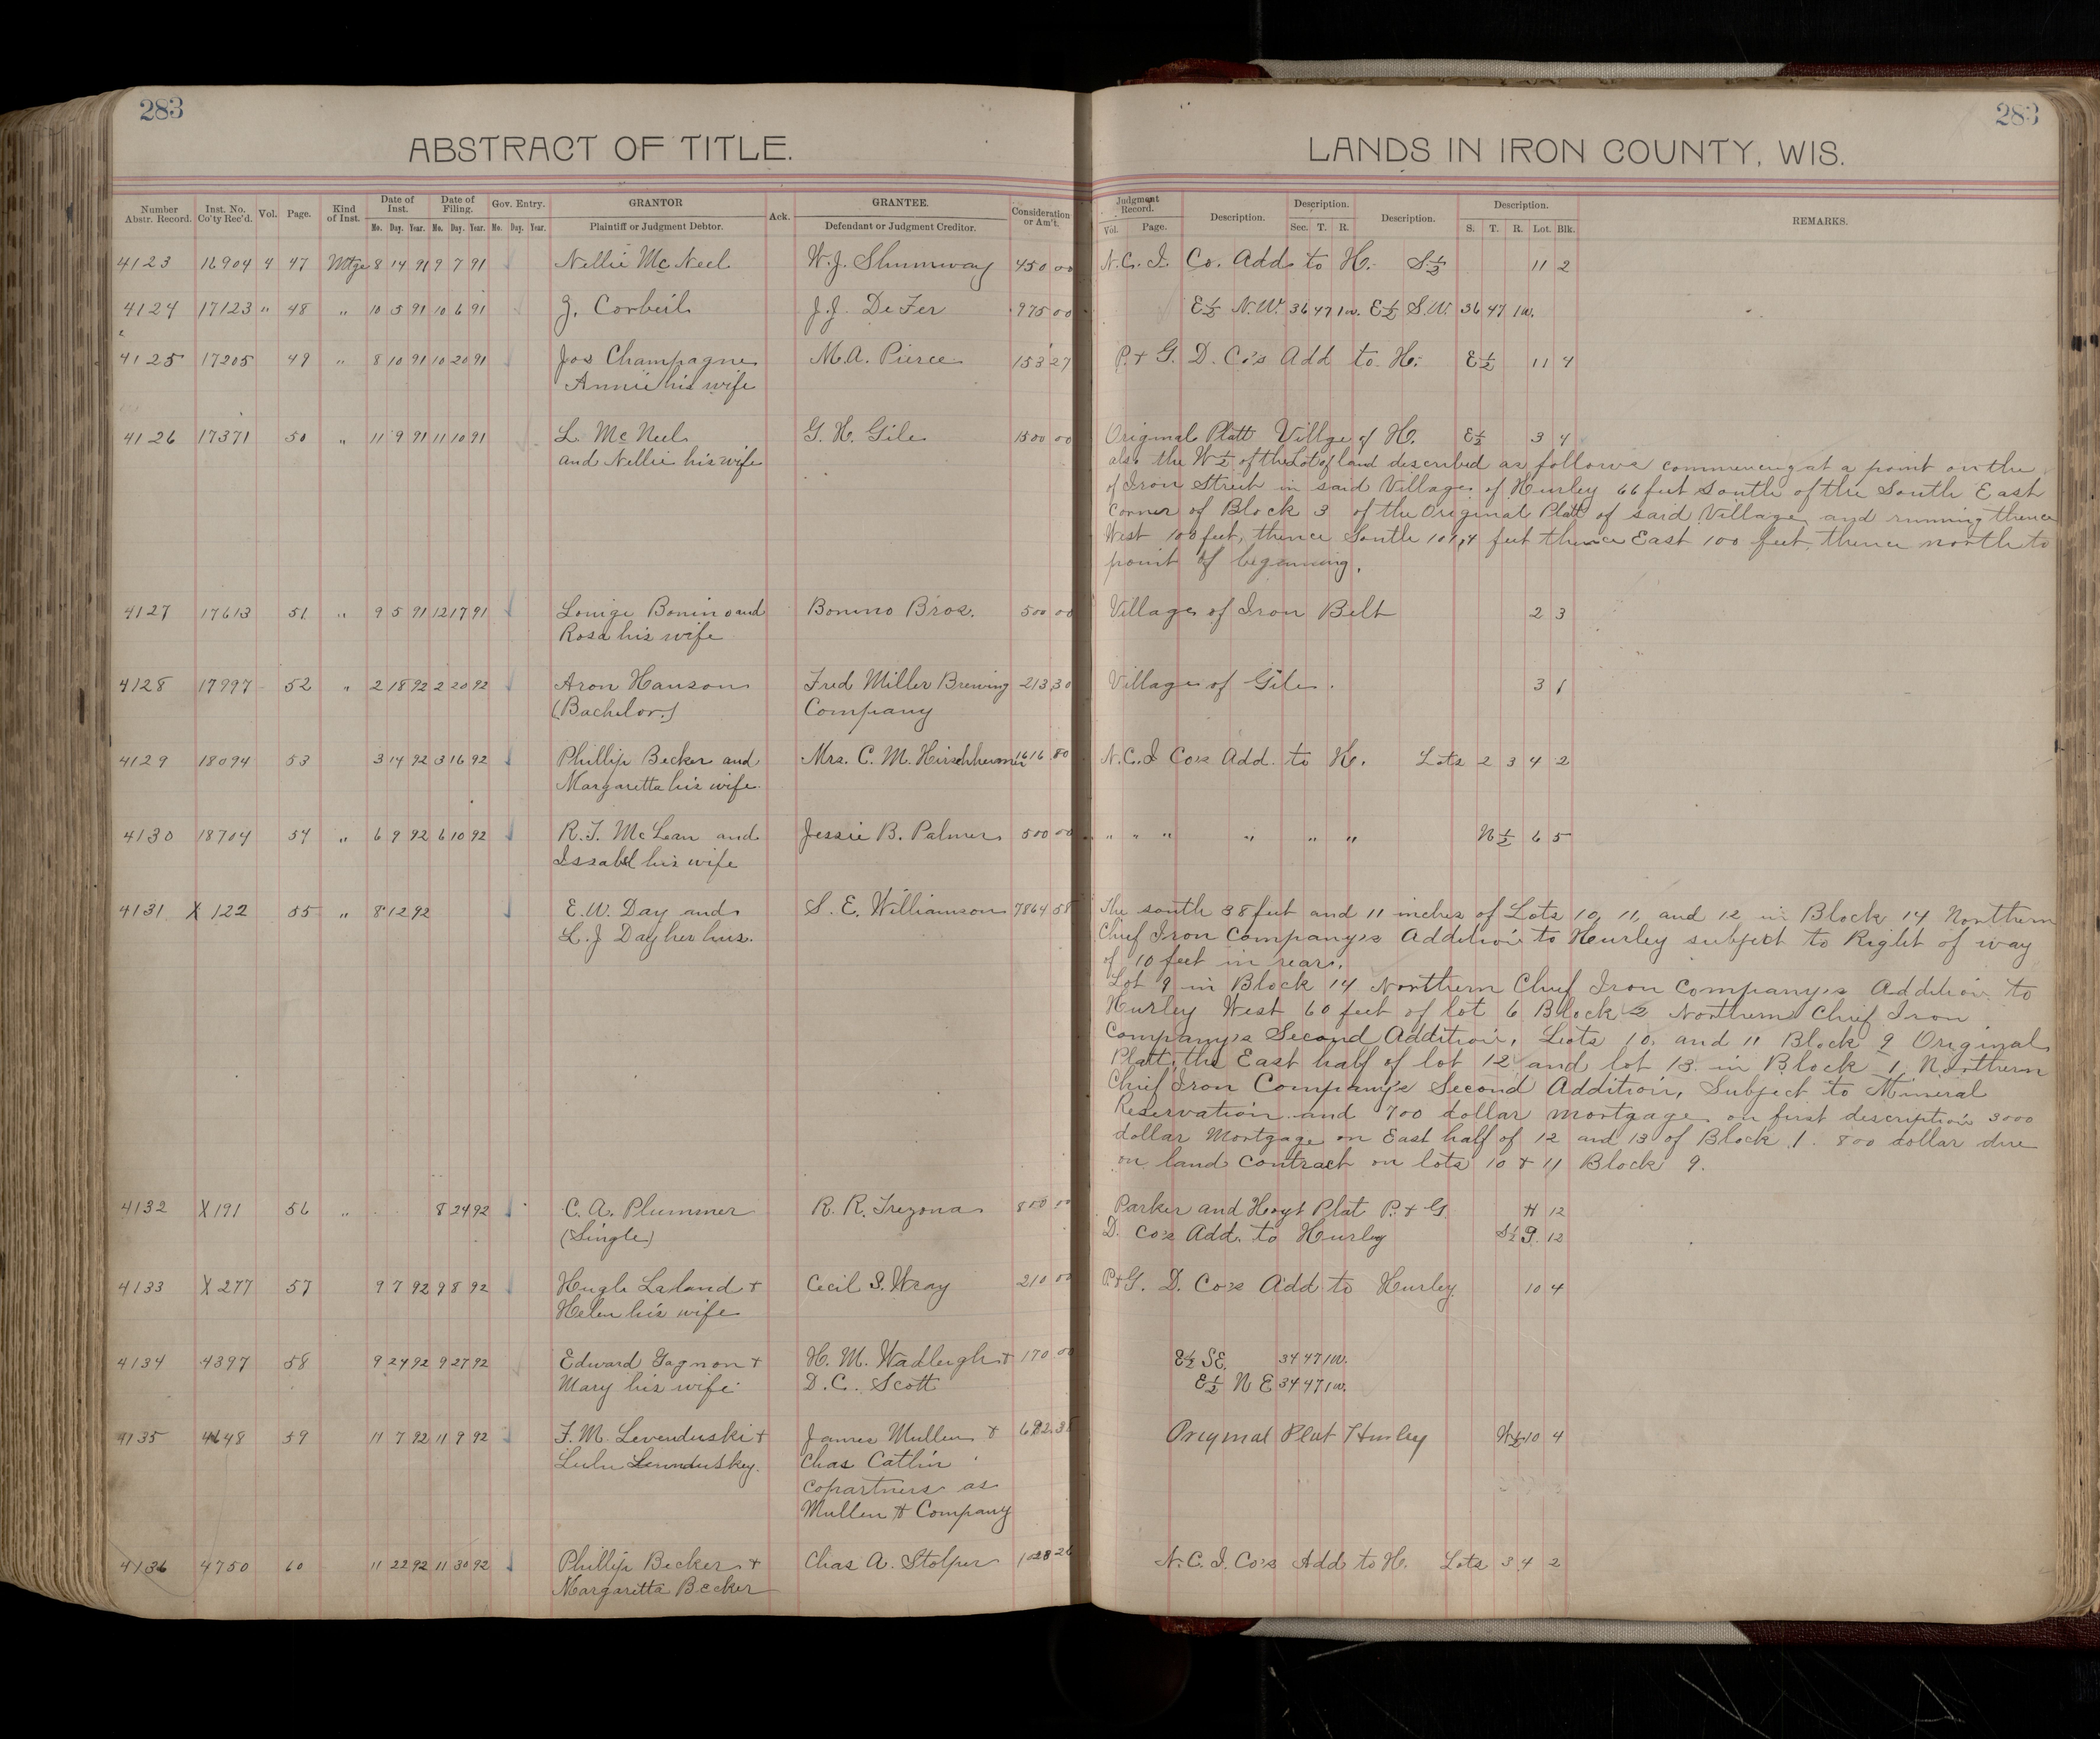 283
283
ABSTRACT OF TITLE.
LANDS IN IRON COUNTY, WIS.
Number Abstr. Record. Inst. No. Co'ty Rec'd. Vol. Page. Kind of Inst. Date of Inst. Date of Filing. Gov. Entry. GRANTOR Ack. GRANTEE. Consideration or Am't. Judgment Record. Description. Description. Description. Description. REMARKS.
Mo. Day. Year. Mo. Day. Year. Mo. Day. Year. Plaintiff or Judgment Debtor. Defendant or Judgment Creditor. Vol. Page. Sec. T. R. S. T. R. Lot. Blk.
4123 16904 4 47 Mtge 8 14 91 9 7 91 Nellie McNeel W.J. Shumway 450 00 N.C.I. Co. Add to H. S½ 11 2
4124 17123 " 48 " 10 5 91 10 6 91 J. Corbeil J.J. DeFer 975 00 E½ N.W. 36 47 1w. E½ S.W. 36 47 1w.
4125 17205 49 " 8 10 91 10 20 91 Jos Champagne M.A. Pierce 153 27 P. & G. D. Co's Add to H. E½ 11 4
Annie his wife
4126 17371 50 " 11 9 91 11 10 91 L. McNeel G.H. Gile 1500 00 Original Platt Villge of H. E½ 3 4
and Nellie his wife also the W½ of the Lot of land described as follows commencing at a point on the
of Iron Street in said Village of Hurley 66 feet South of the South East
Corner of Block 3 of the Original Platt of said Village and running thence
West 100 feet, thence South 101,4 feet thence East 100 feet, thence north to
point of beginning.
4127 17613 51 " 9 5 91 12 17 91 Louige Bonino and Bonino Bros. 500 00 Village of Iron Belt 2 3
Rosa his wife
4128 17997 52 " 2 18 92 2 20 92 Aron Hanson Fred Miller Brewing 213 30 Village of Gile. 3 1
(Bachelor) Company
4129 18094 53 3 14 92 3 16 92 Phillip Becker and Mrs. C. M. Hirschheimer 1616 80 N.C.I Co's Add. to H. Lots 2 3 4 2
Margaretta his wife
4130 18704 54 " 6 9 92 6 10 92 R.T. McLean and Jessie B. Palmer 500 00 " " " " " " N½ 6 5
Issabel his wife
4131 X 122 55 " 8 12 92 E.W. Day and S. E. Williamson 7864 58 The south 38 feet and 11 inches of Lots 10, 11, and 12 in Block 14 Northern
L.J Day her hus. Chief Iron Company's Addition to Hurley subject to Right of way
of 10 feet in rear.
Lot 9 in Block 14 Northern Chief Iron Company's Addition to
Hurley West 60 feet of lot 6 Block 2 Northern Chief Iron
Company's Second Addition, Lots 10, and 11 Block 9 Original
Platt, the East half of lot 12 and lot 13 in Block 1 Northern
Chief Iron Company's Second Addition, Subject to Mineral
Reservation and 700 dollar mortgage on first description 3000
dollar Mortgage on East half of 12 and 13 of Block 1. 800 dollar due
on land contract on lots 10 & 11 Block 9.
4132 X 191 56 " 8 24 92 C. A. Plummer R. R. Trezona 800 00 Parker and Hoyt Plat P. & G. 12
(Single) D. Co's Add. to Hurley S½ 9 12
4133 X 277 57 9 7 92 9 8 92 Hugh Laland & Cecil S. Wray 210 00 P & G. D. Co's Add to Hurley 10 4
Helen his wife
4134 4397 58 9 24 92 9 27 92 Edward Gagnon & H. M. Wadleigh & 170 00 E½ SE. 34 47 1w.
Mary his wife D.C. Scott E½ N E 34 47 1w.
4135 4648 59 11 7 92 11 9 92 F.M. Levenduski & James Mullen & Original Plat Hurley 10 4
Lulu Chas Catlin
copartners as
Mullen & Company
4136 4750 60 11 22 92 11 30 92 Phillip Becker & Chas A. Stolper 1028 26 N.C.I. Co's Add to H. Lots 3 4 2
Margaretta Becker